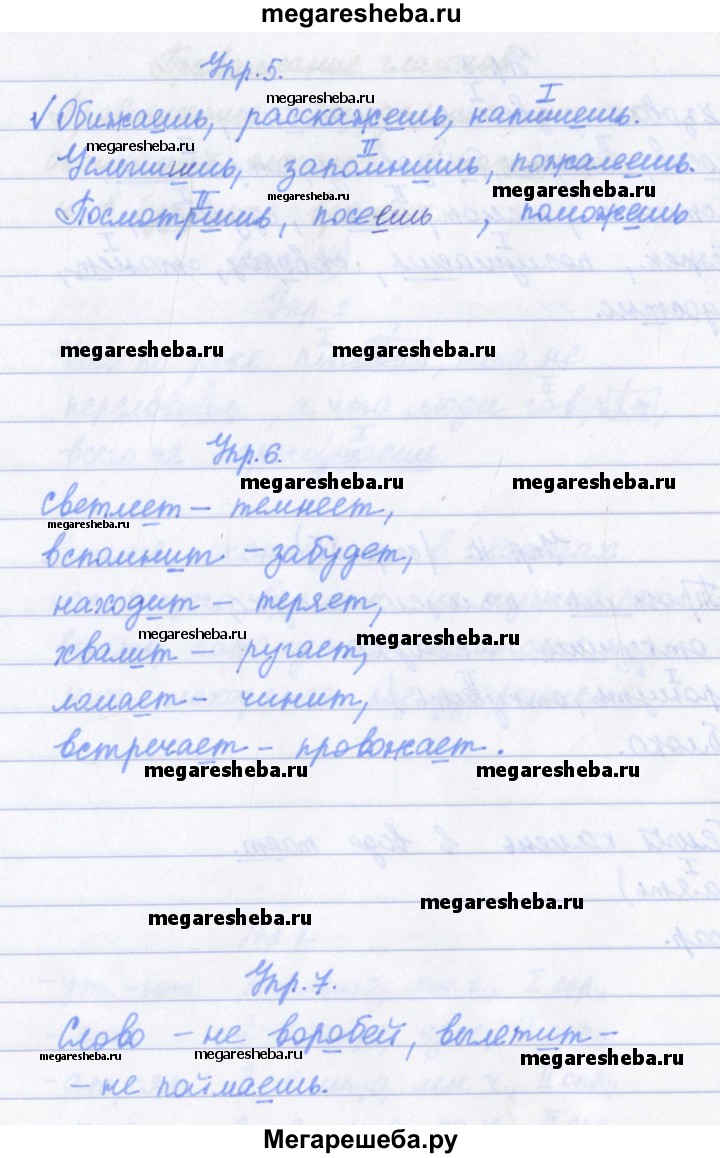 megaresheba.ru
Упр. 5.
megaresheba.ru
I
√ Обижаешь, расскажешь, напишешь.
megaresheba.ru
II
Услышишь, запомнишь, пожалеешь.
megaresheba.ru
megaresheba.ru
II
Посмотришь, посеешь , поможешь
megaresheba.ru
megaresheba.ru
Упр. 6.
megaresheba.ru
megaresheba.ru
светлеет – темнеет,
megaresheba.ru
вспомнит – забудет,
находит – теряет,
megaresheba.ru
megaresheba.ru
хвалит – ругает,
ломает – чинит,
встречает – провожает.
megaresheba.ru
megaresheba.ru
megaresheba.ru
megaresheba.ru
Упр. 7.
Слово – не воробей, вылетит –
megaresheba.ru
megaresheba.ru
megaresheba.ru
– не поймаешь.
Мегарешеба.ру